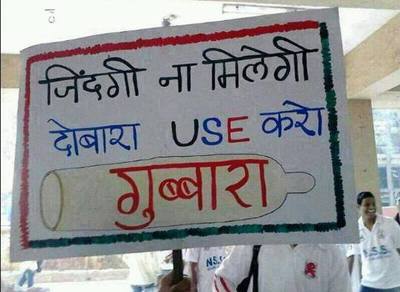 ज़िंदगी ना मिलेगी
दोबारा USE करो
गुब्बारा
N.S.S
N.S.S